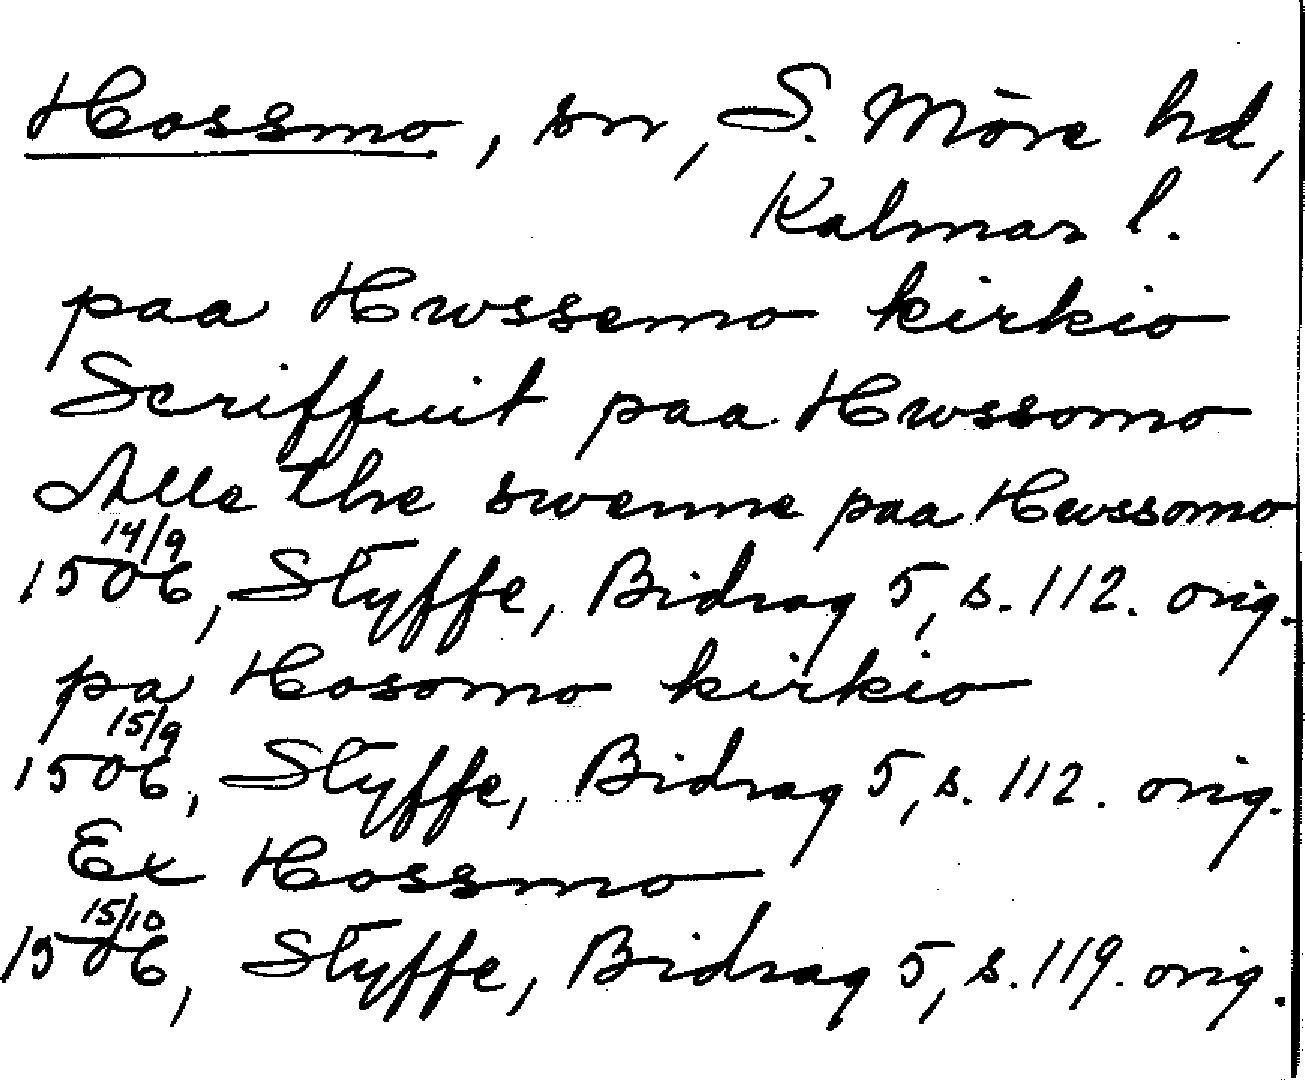 Hossmo, sn, S. Möre hd,
Kalmar l.
paa Hwssemo kirkio
Scriffuit paa Hwssomo
Alle the swenne paa Hwssomo
14/9
1506, Styffe, Bidrag 5, s. 112. orig.
pa Hosomo kirkio
15/9
1506, Styffe, Bidrag 5, s. 112. orig.
Ex Hossmo
15/10
1506, Styffe, Bidrag 5, s. 119. orig.